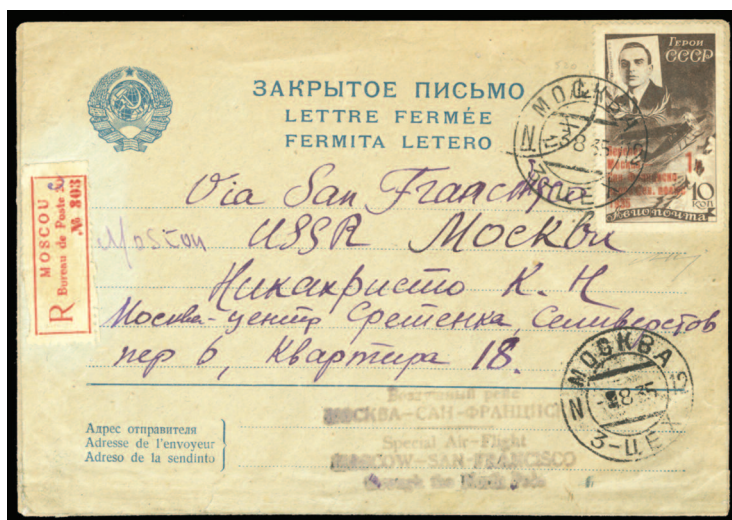 ЗАКРЫТОЕ ПИСЬМО
LETTRE FERMÉE
FERMITA LETERO
ГЕРОИ
СССР
1 р.
10
КОП
Авиопочта
МОСКВА
8 35
MOSCOU
Bureau de Poste
№ 803
R
Via San
Moscou
USSR Москва
Никакристо К. Н
Москва-центр Сретенка, Селиверстов
пер 6, Квартира 18.
МОСКВА
8 35
3-ЦЕХ
Адрес отправителя
Adresse de l'envoyeur
Adreso de la sendinto
МОСКВА-САН-ФРАНЦИС
Special Air-Flight
MOSCOW-SAN-FRANCISCO
through the North Pole